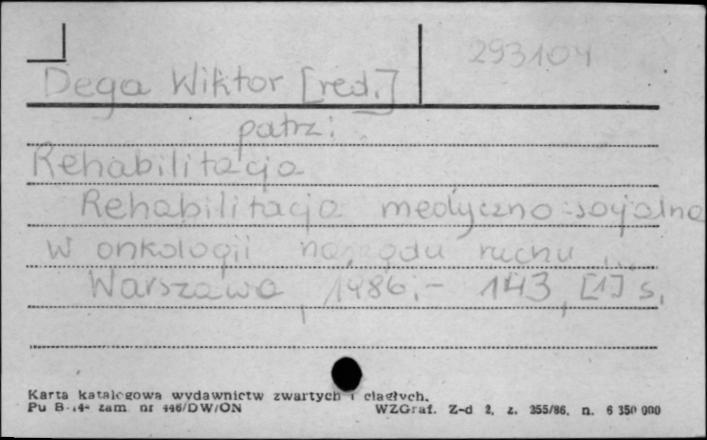 293104
Dega Wiktor [red.]
patrz:
Rehabilitacja
Rehabilitacja medyczno-socjalna
w onkologii narządu ruchu ...
Warszawa, 1986.- 143, [1] s.
Karta katalogowa wydawnictw zwartych i ciągłych.
Pu B-14- zam. nr 446/DW/ON WZGraf. Z-d 2, z. 355/86. n. 6 350 000